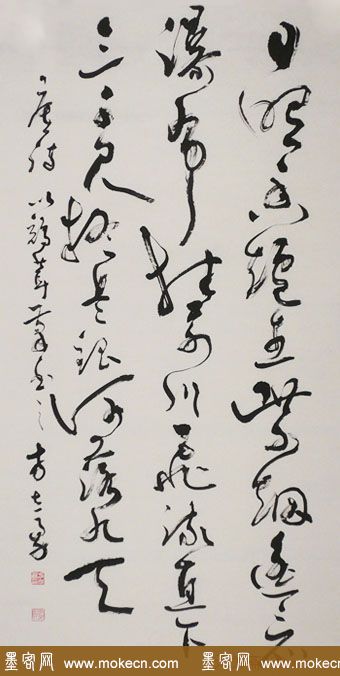 日照香爐生紫烟遥看
瀑布挂前川飛流直下
三千尺疑是銀河落九天
唐詩 以鶴壽筆書之
墨客网 www.mokecn.com 墨客网 www.mokecn.com